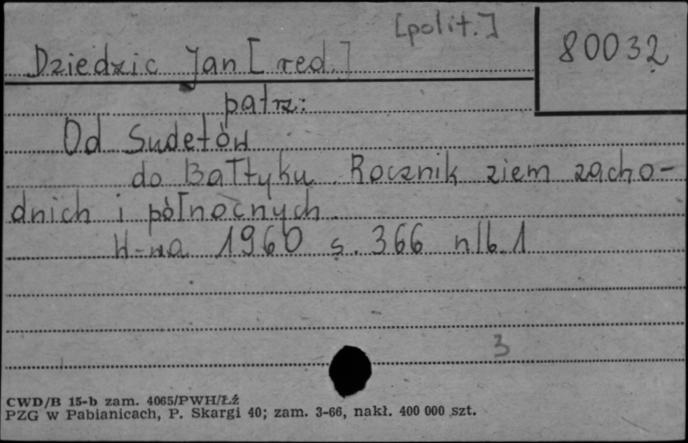 [polit.]
80032
Dziedzic Jan [red.]
patrz:
Od Sudetów
do Bałtyku. Rocznik ziem zacho-
dnich i północnych.
W-wa 1960 s. 366 nlb. 1
3
CWD/B 15-b zam. 4065/PWH/Łź
PZG w Pabianicach, P. Skargi 40; zam. 3-66, nakł. 400 000 szt.